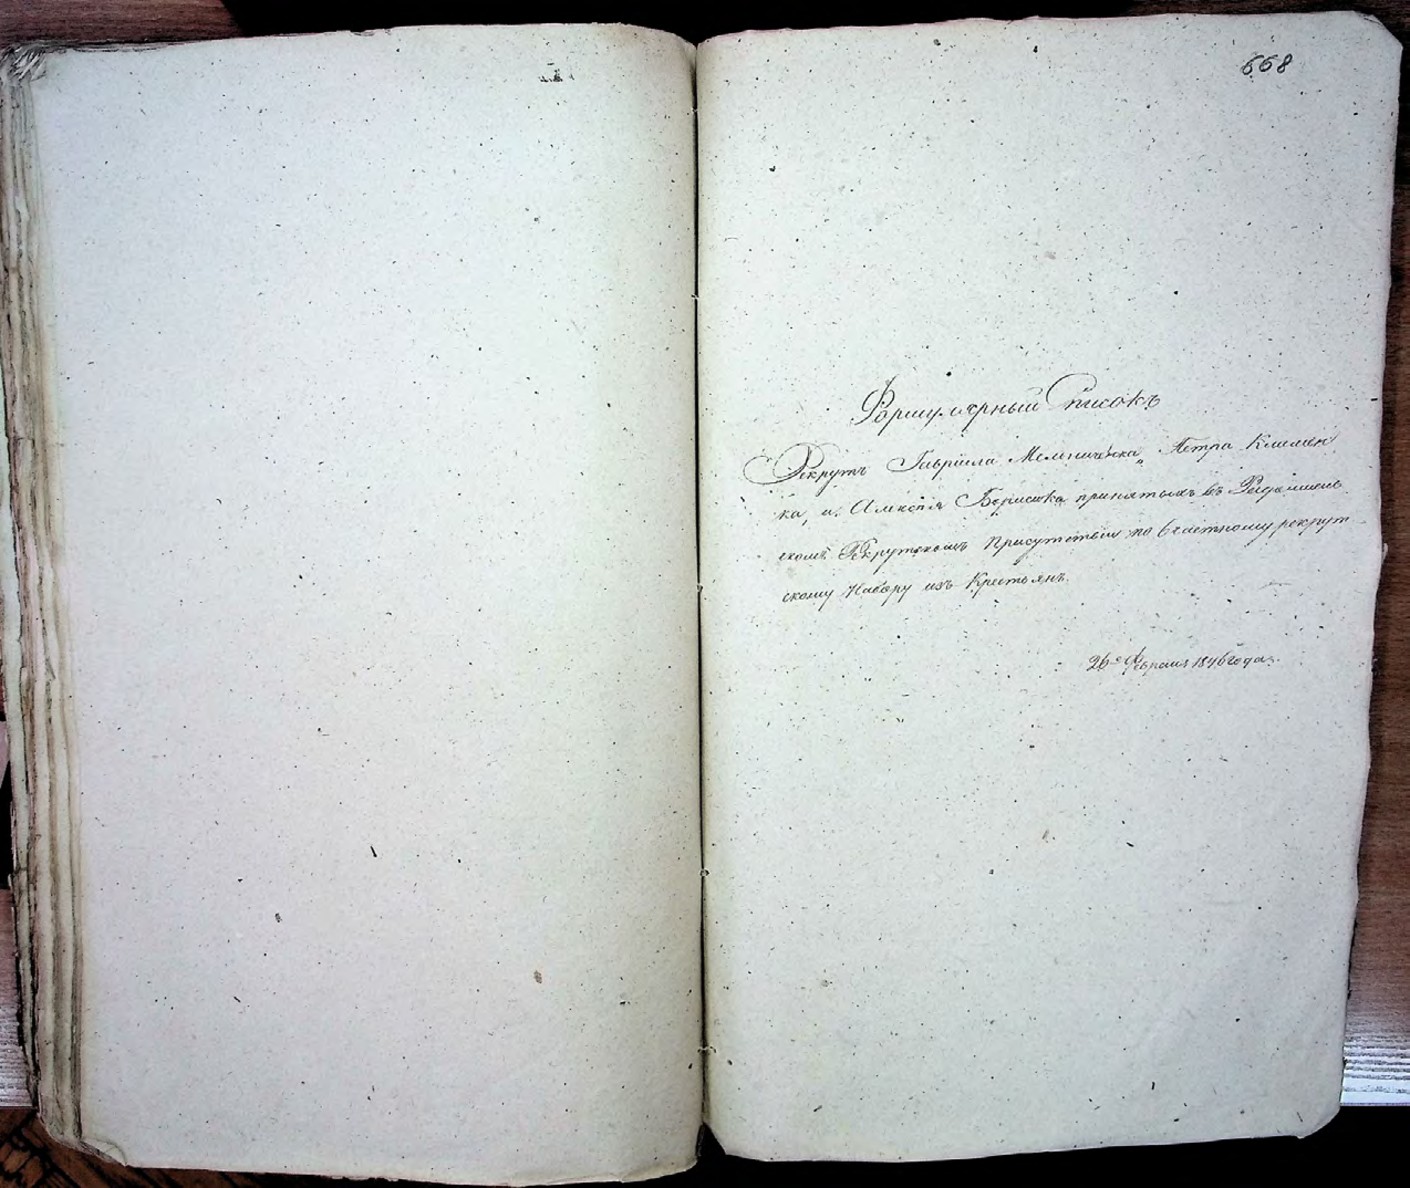 668
Формулярный Списокъ
Рекрутъ Гавріила Мельниченка, Петра Климен
ка, и Алексѣя Борисика принятыхъ въ
скомъ Рекрутскомъ Присутствіи по 6 частному рекрут-
скому Набору изъ Крестьянъ.
26го Февраля 1846 года.